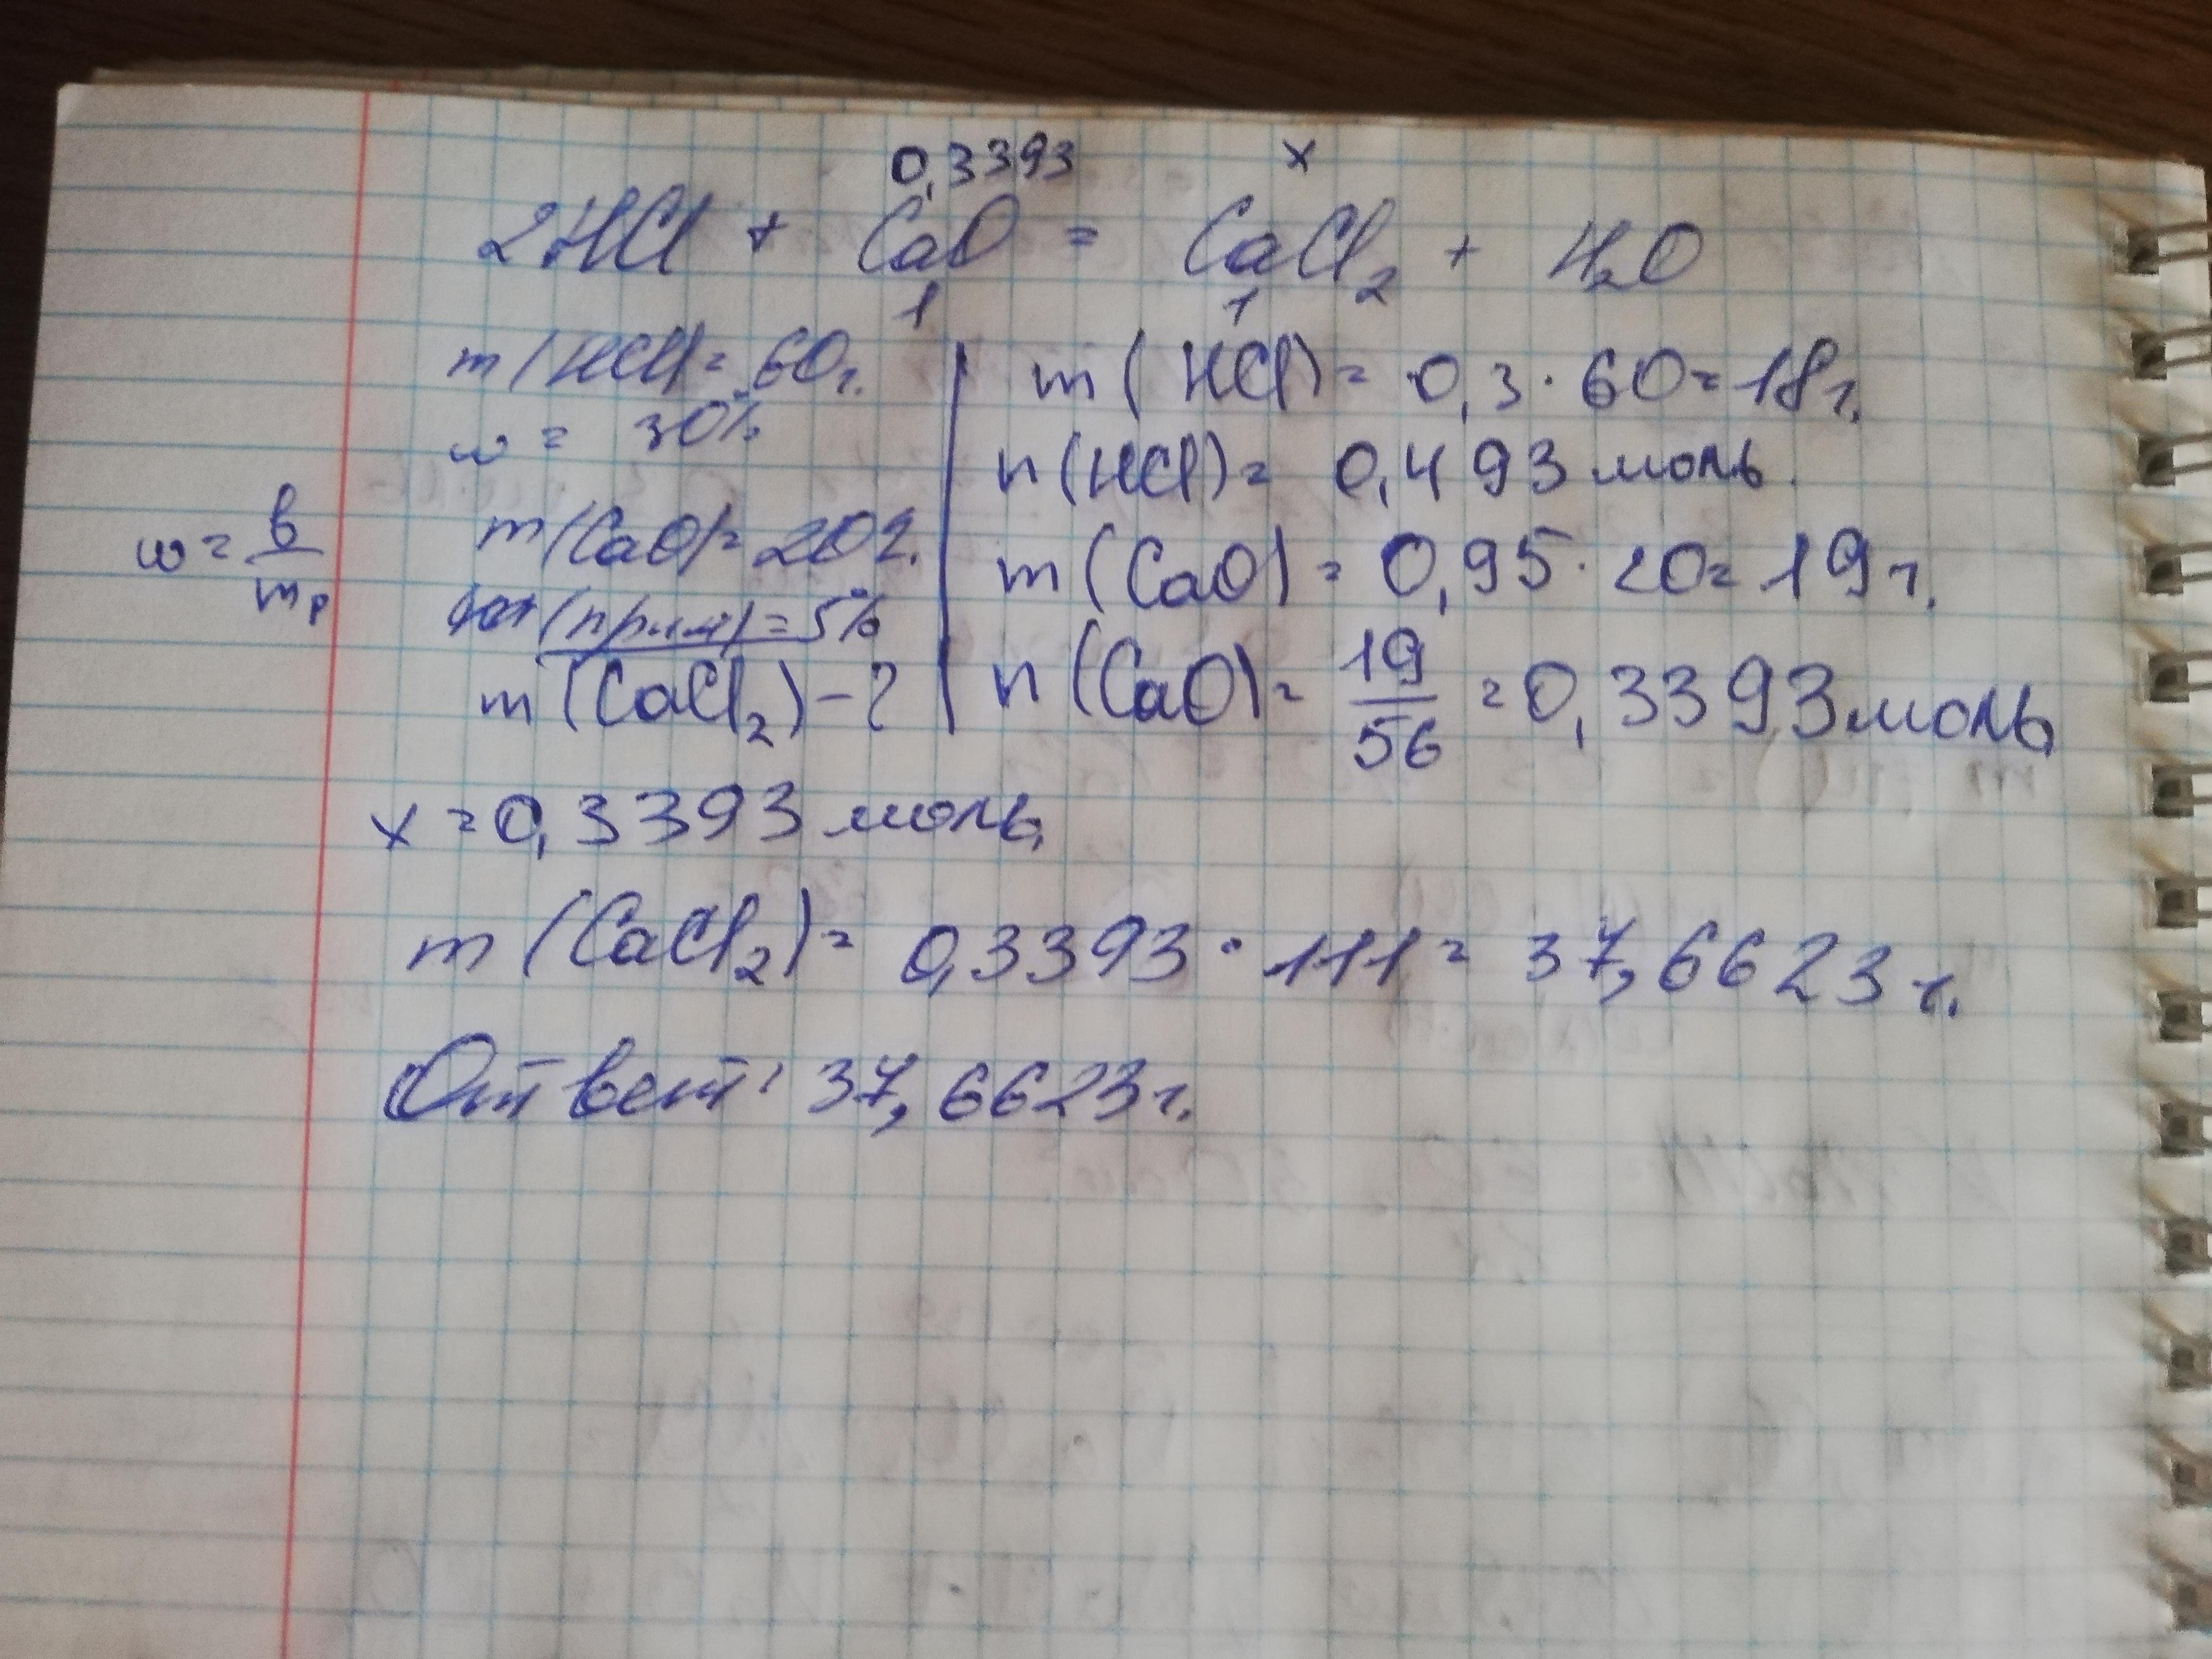 0,3393 x
2HCl + CaO = CaCl₂ + H₂O
1 1
m(HCl) = 60г.
w = 30%
w = в/mр
m(CaO) = 20г.
(прим) = 5%
m(CaCl₂) - ?
m(HCl) = 0,3 · 60 = 18г.
n(HCl) = 0,493 моль.
m(CaO) = 0,95 · 20 = 19г.
n(CaO) = 19/56 = 0,3393 моль
x = 0,3393 моль
m(CaCl₂) = 0,3393 · 111 = 37,6623 г.
Ответ: 37,6623г.